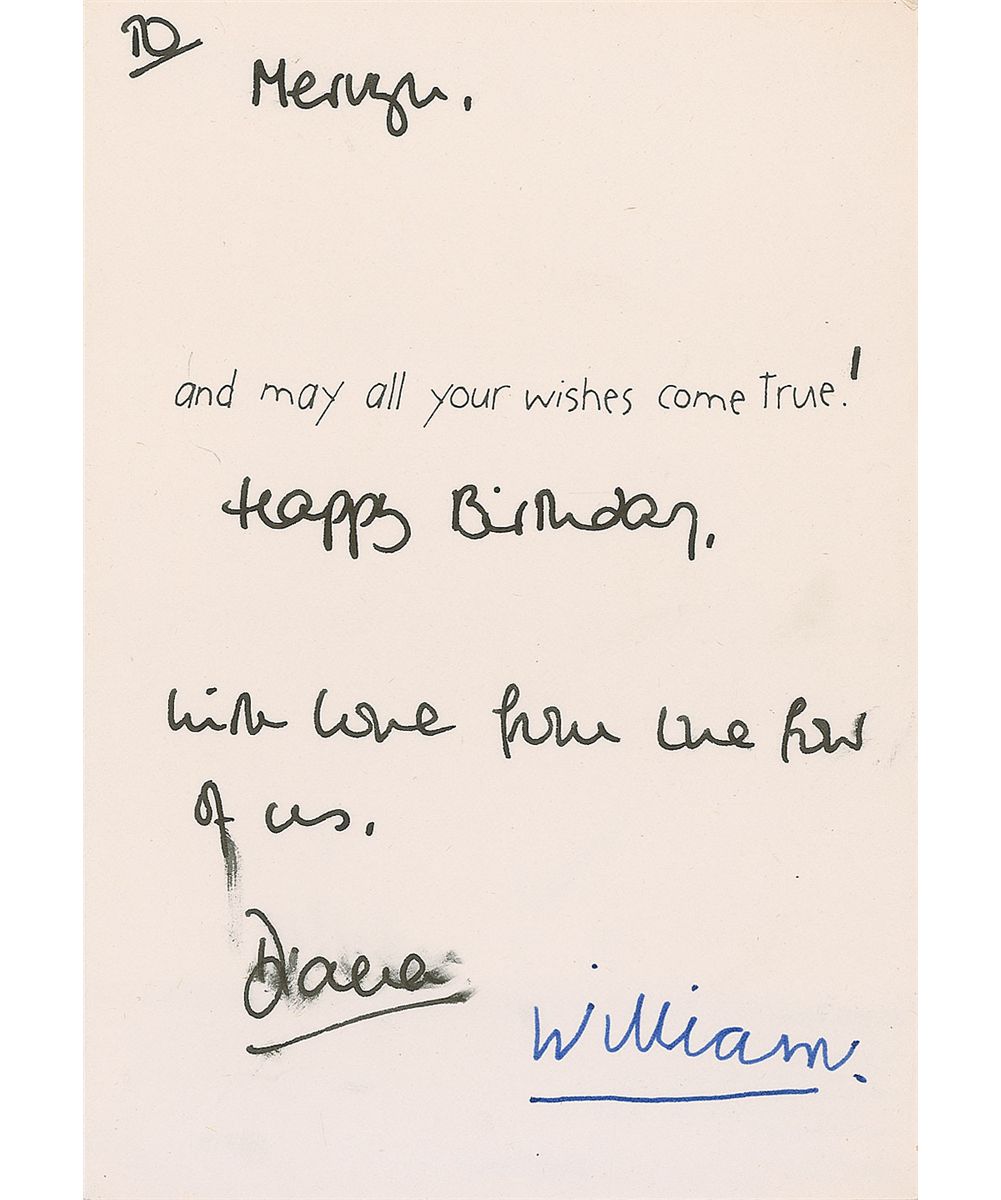 To
Mervyn.
and may all your wishes come true!
Happy Birthday.
with love from the four
of us.
Diana
William.